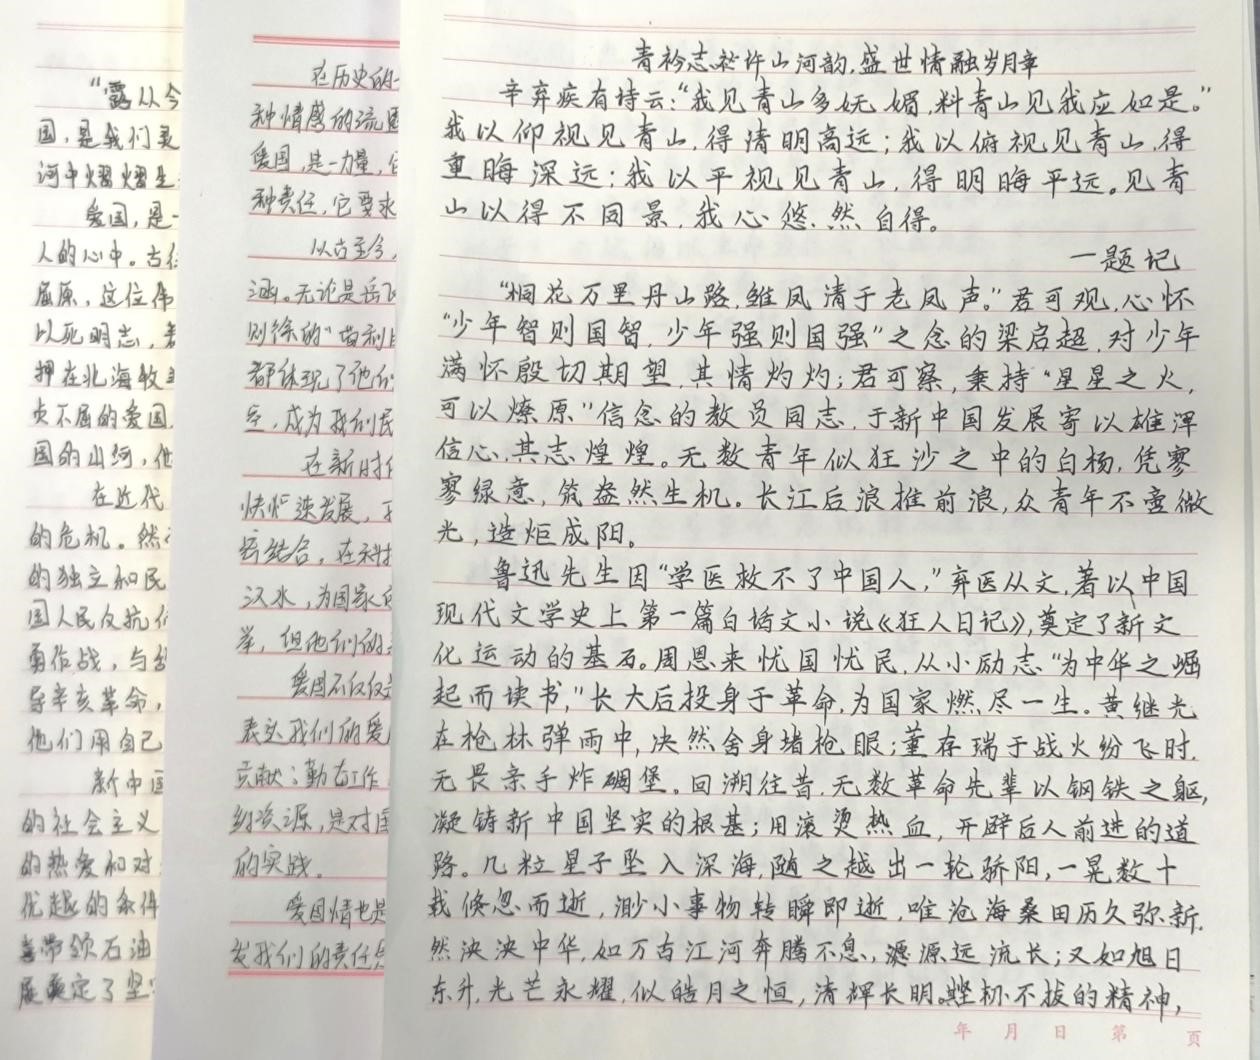 "露从今
国，是我们灵
河中熠熠生
爱国，是一
人的心中。古
屈原，这位伟
以死明志，
押在北海牧
贞不屈的爱国
国的山河，他
在近代
的危机。然
的独立和民
国人民反抗
勇作战，与
导辛亥革命，
他们用自己
新中国
的社会主义
的热爱和对
优越的条件
喜带领石油
展奠定了坚
在历史的
种情感的流
爱国，是一力量，
种责任，它要求
从古至今，
涵。无论是岳飞
则徐的"苟利
都体现了他们
空，成为我们民
在新时代
快忙速发展，
紧结合，在科技
汉水，为国家
举，但他们的
爱国不仅仅是
表达我们的爱
贡献；勤奋工作
约资源，是对国
的实践。
爱国情也是
发我们的责任
青衿志评山河韵，盛世情融岁月华
辛弃疾有诗云："我见青山多妩媚，料青山见我应如是。"
我以仰视见青山，得清明高远；我以俯视见青山，得
重晦深远；我以平视见青山，得明晦平远。见青
山以得不同景，我心悠然自得。
一题记
"桐花万里丹山路，雏凤清于老凤声。"君可观，心怀
"少年智则国智，少年强则国强"之念的梁启超，对少年
满怀殷切期望，其情灼灼；君可察，秉持"星星之火，
可以燎原"信念的教员同志，于新中国发展寄以雄浑
信心，其志煌煌。无数青年似狂沙之中的白杨，凭寥
寥绿意，筑盎然生机。长江后浪推前浪，众青年不啻微
光，造炬成阳。
鲁迅先生因"学医救不了中国人，"弃医从文，著以中国
现代文学史上第一篇白话文小说《狂人日记》，奠定了新文
化运动的基石。周恩来忧国忧民，从小励志"为中华之崛
起而读书，"长大后投身于革命，为国家燃尽一生。黄继光
在枪林弹雨中，决然舍身堵枪眼；董存瑞于战火纷飞时，
无畏亲手炸碉堡。回溯往昔，无数革命先辈以钢铁之躯，
凝铸新中国坚实的根基；用滚烫热血，开辟后人前进的道
路。几粒星子坠入深海，随之越出一轮骄阳，一晃数十
载倏忽而逝，渺小事物转瞬即逝，唯沧海桑田历久弥新，
然泱泱中华，如万古江河奔腾不息，源远流长；又如旭日
东升，光芒永耀，似皓月之恒，清辉长明。坚韧不拔的精神，
年 月 日 第 页